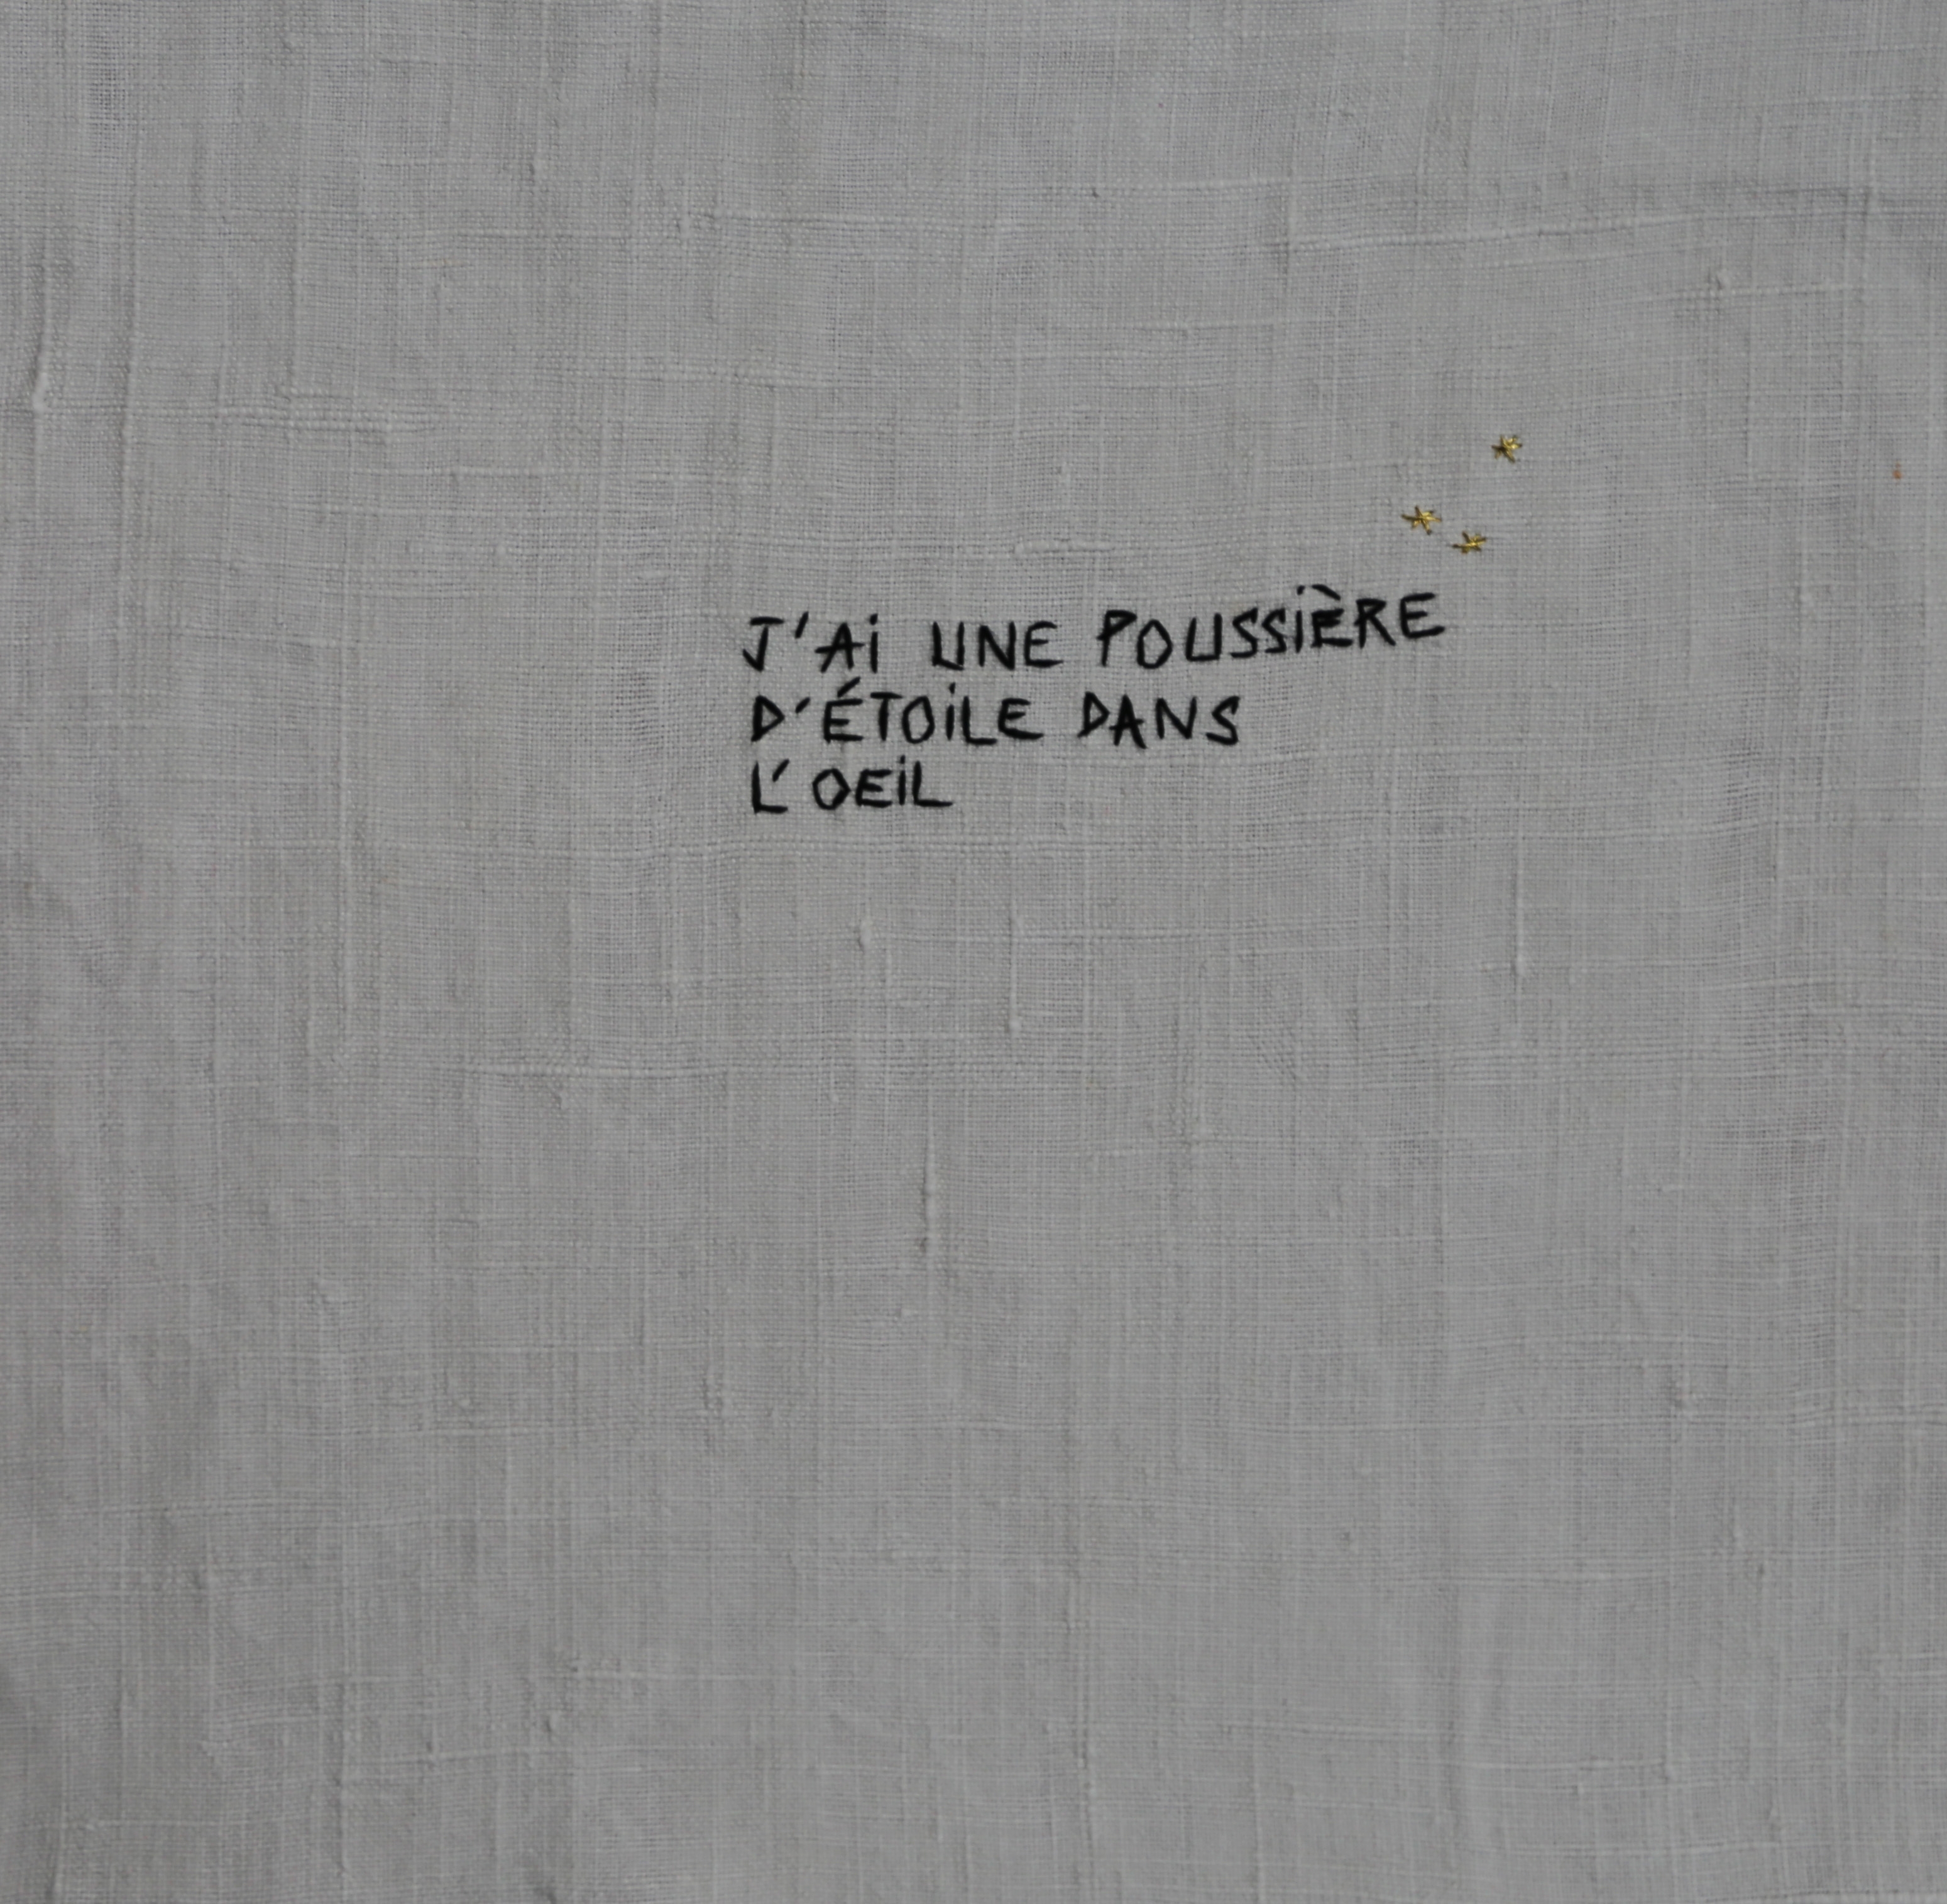 J'Ai UNE POUSSiÈRE
D'ÉTOiLE DANS
L'OEiL